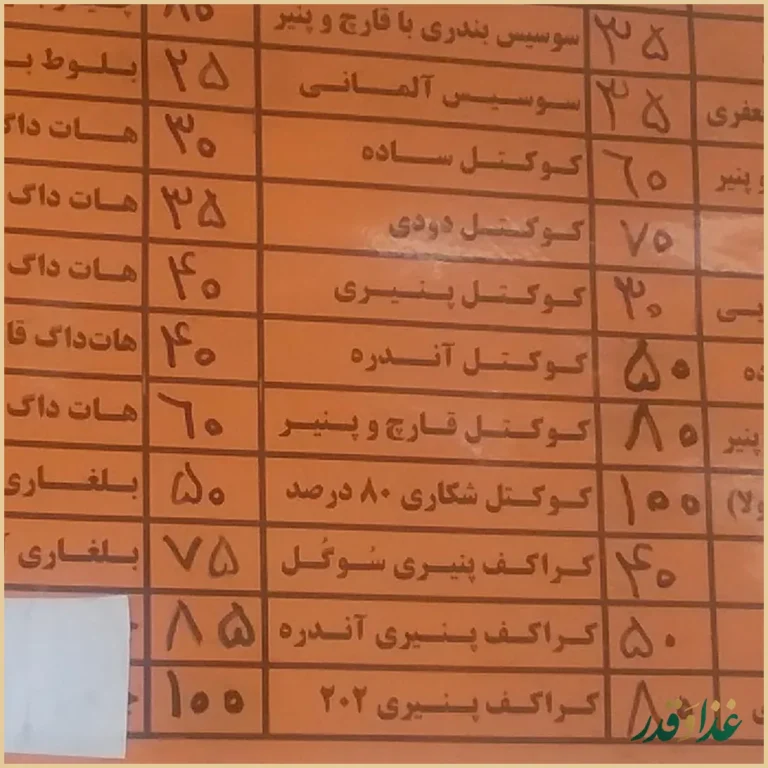 ۳۵ سوسیس بندری با قارچ و پنیر ۸۵
عفری ۳۵ سوسیس آلمانی ۲۵ بلوط
و پنیر ۶۰ کوکتل ساده ۳۰ هات داگ
۷۰ کوکتل دودی ۳۵ هات داگ
یی ۳۰ کوکتل پنیری ۴۰ هات داگ
ده ۵۰ کوکتل آندره ۴۰ هات‌داگ قا
پنیر ۸۰ کوکتل قارچ و پنیر ۶۰ هات داگ
ولا) ۱۰۰ کوکتل شکاری ۸۰ درصد ۵۰ بلغاری
۴۰ کراکف پنیری سُوگُل ۷۵ بلغاری
۵۰ کراکف پنیری آندره ۸۵
۸۰ کراکف پنیری ۲۰۲ ۱۰۰
غذا و قدر